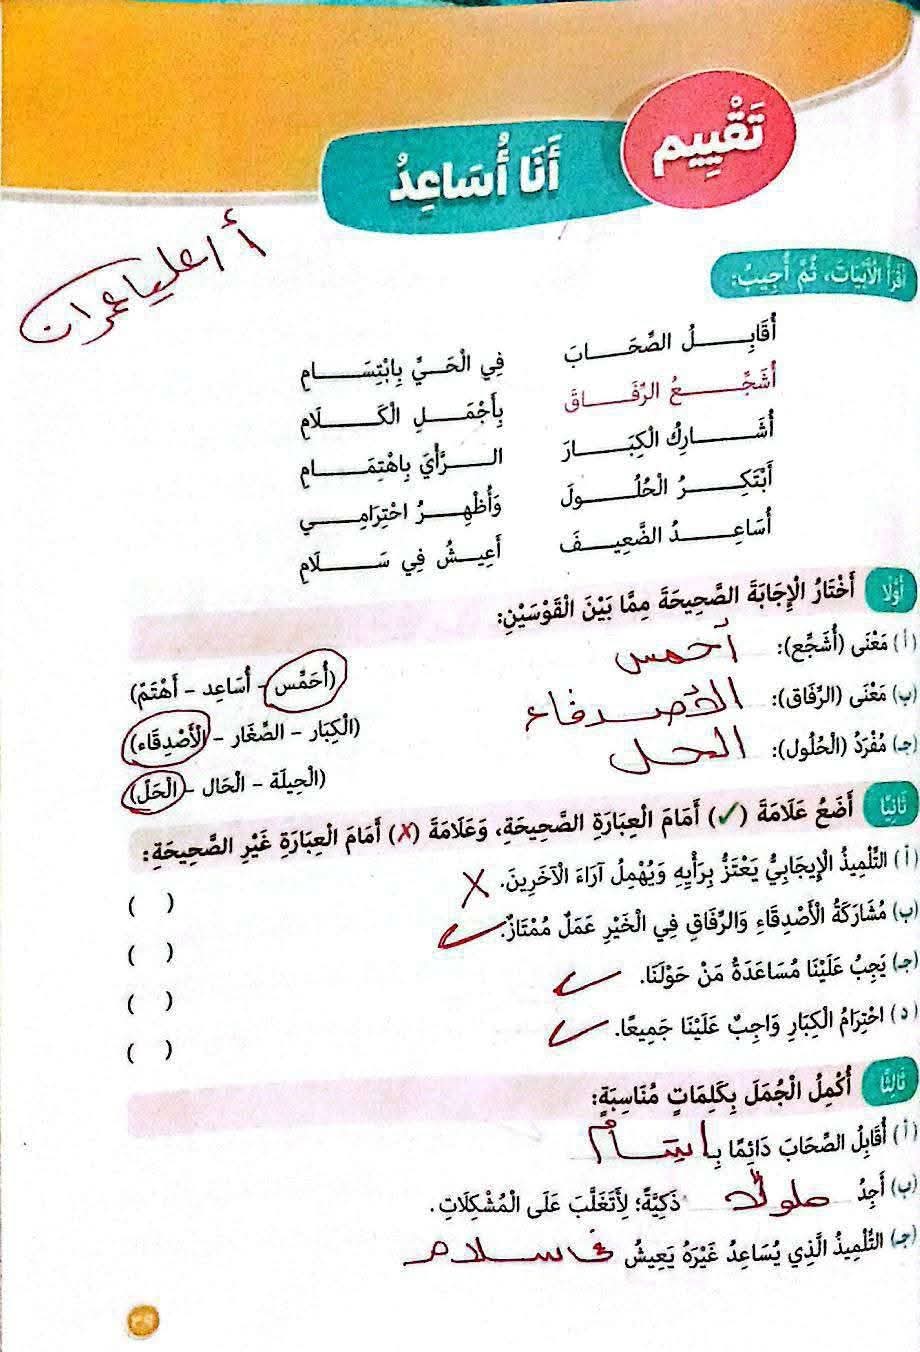 تَقْيِيم
أَنَا أُسَاعِدُ
أ/ علياء عمران
أَقْرَأُ الْأَبْيَاتَ، ثُمَّ أُجِيبُ:
أُقَابِـلُ الصِّحَـابَ فِي الْحَـيِّ بِابْتِسَـامِ
أُشَجِّـعُ الرِّفَـاقَ بِأَجْمَـلِ الْكَـلَامِ
أُشَـارِكُ الْكِبَـارَ الـرَّأْيَ بِاهْتِمَـامِ
أَبْتَكِـرُ الْحُلُـولَ وَأُظْهِـرُ احْتِرَامِـي
أُسَاعِـدُ الضَّعِيـفَ أَعِيـشُ فِي سَـلَامِ
أَوَّلًا أَخْتَارُ الْإِجَابَةَ الصَّحِيحَةَ مِمَّا بَيْنَ الْقَوْسَيْنِ:
(أ) مَعْنَى (أُشَجِّع): أحمس (أُحَمِّس - أُسَاعِد - أَهْتَمّ)
(ب) مَعْنَى (الرِّفَاق): الأصدقاء (الْكِبَار - الصِّغَار - الْأَصْدِقَاء)
(جـ) مُفْرَدُ (الْحُلُول): الحل (الْحِيلَة - الْحَال - الْحَلّ)
ثَانِيًا أَضَعُ عَلَامَةَ (✓) أَمَامَ الْعِبَارَةِ الصَّحِيحَةِ، وَعَلَامَةَ (✗) أَمَامَ الْعِبَارَةِ غَيْرِ الصَّحِيحَةِ:
(أ) التِّلْمِيذُ الْإِيجَابِيُّ يَعْتَزُّ بِرَأْيِهِ وَيُهْمِلُ آرَاءَ الْآخَرِينَ. ✗ ( )
(ب) مُشَارَكَةُ الْأَصْدِقَاءِ وَالرِّفَاقِ فِي الْخَيْرِ عَمَلٌ مُمْتَازٌ. ✓ ( )
(جـ) يَجِبُ عَلَيْنَا مُسَاعَدَةُ مَنْ حَوْلَنَا. ✓ ( )
(د) احْتِرَامُ الْكِبَارِ وَاجِبٌ عَلَيْنَا جَمِيعًا. ✓ ( )
ثَالِثًا أُكْمِلُ الْجُمَلَ بِكَلِمَاتٍ مُنَاسِبَةٍ:
(أ) أُقَابِلُ الصِّحَابَ دَائِمًا بِـ ابتسام
(ب) أَجِدُ حلولًا ذَكِيَّةً؛ لِأَتَغَلَّبَ عَلَى الْمُشْكِلَاتِ.
(جـ) التِّلْمِيذُ الَّذِي يُسَاعِدُ غَيْرَهُ يَعِيشُ في سلام